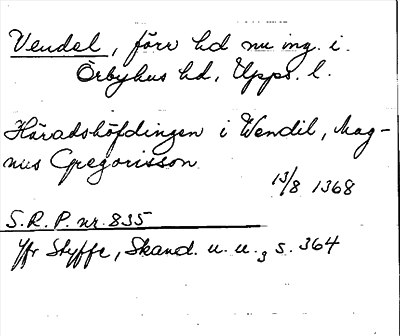 Vendel, förr hd nu ing. i.
Örbyhus hd, Upps. l.
Häradshöfdingen i Wendil, Mag-
nus Gregorisson
13/8 1368
S.R.P. nr. 835
Jfr Styffe, Skand. u. u., s. 364